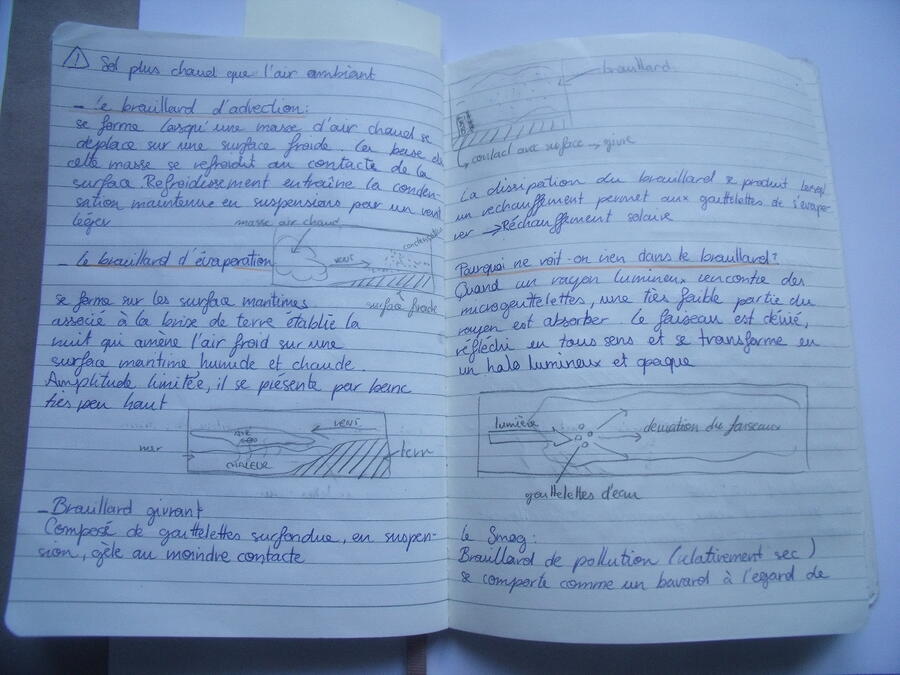 ! Sol plus chaud que l'air ambiant
- Le brouillard d'advection:
se forme lorsqu'une masse d'air chaud se
déplace sur une surface froide. La base de
cette masse se refroidit au contacte de la
surface. Refroidissement entraîne la conden-
sation maintenue en suspensions par un vent
léger
masse air chaud
condensation
vent
surface froide
- Le brouillard d'évaporation
se forme sur les surface maritimes
associé à la brise de terre établie la
nuit qui amène l'air froid sur une
surface maritime humide et chaude.
Amplitude limitée, il se présente par banc
très peu haut
AIR
VENT
mer
CHALEUR
terre
- Brouillard givrant
Composé de gouttelettes surfondue, en suspen-
sion, gèle au moindre contacte
brouillard
contact avec surface → givre
La dissipation du brouillard se produit lorsqu'
un rechauffement permet aux gouttelettes de s'évapo-
rer → Réchauffement solaire
Pourquoi ne voit-on rien dans le brouillard?
Quand un rayon lumineux rencontre des
microgouttelettes, une très faible partie du
rayon est absorber. Le faiseau est dévié,
réfléchi en tous sens et se transforme en
un halo lumineux et opaque
lumière
déviation du faiseaux
gouttelettes d'eau
Le Smog:
Brouillard de pollution (relativement sec)
se comporte comme un bavard à l'égard de